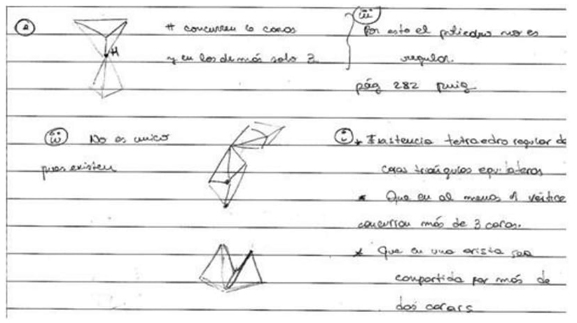 a
H
H concurren 6 caras
y en los demás solo 3
iii
Por esto el poliedro no es
regular.
pág 282 Puig
iv No es unico
pues existen
i * Existencia tetraedro regular de
caras triángulos equilateros
* Que en al menos 1 vértice
concurran más de 3 caras.
* Que en una arista sea
compartida por más de
dos caras